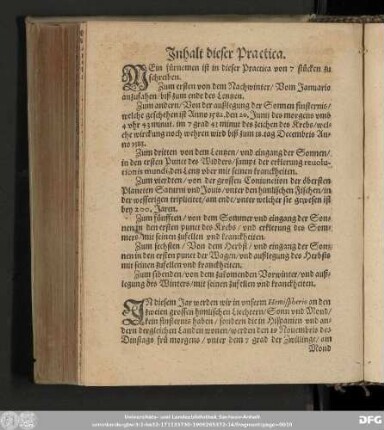 Inhalt dieser Practica.
MEin fürnemen ist in dieser Practica von 7 stücken zu
schreiben.
Zum ersten von dem Nachwinter/ Vom Januario
anzufahen biß zum ende des Lenzen.
Zum andern/ Von der außlegung der Sonnen finsternis/
welche geschehen ist Anno 1582. den 20. Junij des morgens vmb
4 vhr 43 minut. im 7 grad 41 minut des zeichen des Krebs/ wel-
che wirckung noch wehren wird biß zum 18. tag Decembris An-
no 1585.
Zum dritten von dem Lentzen/ vnd eingang der Sonnen/
in den ersten Punct des Widders/ sampt der erklerung revolu-
tionis mundi, den Lentz vber mit seinen kranckheiten.
Zum vierdten/ von der grossen Coniunction der öbersten
Planeten Saturni vnd Jouis/ vnter den himlischen Fischen/ in
der wesserigen tripliciter/ am ende/ vnter welcher sie gewesen ist
bey 200. Jaren.
Zum fünfften/ von dem Sommer vnd eingang der Son-
nen in den ersten punct des Krebs/ vnd erklerung des Som-
mers/ mit seinen zufellen vnd kranckheiten.
Zum sechsten/ Von dem Herbst/ vnd eingang der Son-
nen in den ersten punct der Wagen/ vnd außlegung des Herbsts
mit seinen zufellen vnd kranckheiten.
Zum siebenden/ von dem zukomenden Vorwinter/ vnd auß-
legung des Winters/ mit seinen zufellen vnd kranckheiten.
IN diesem Jar werden wir in vnserm Hemisphærio an den
zweien grossen himlischen Liechtern/ Sonn vnd Mond/
kein finsternis haben/ sondern die in Hispanien vnd an-
dern dergleichen Landen wonen/ werden den 19 Nouembris des
Dinstags frü morgens/ vnter dem 7 grad der Zwillinge/ am
Mond
Universitäts- und Landesbibliothek Sachsen-Anhalt
DFG